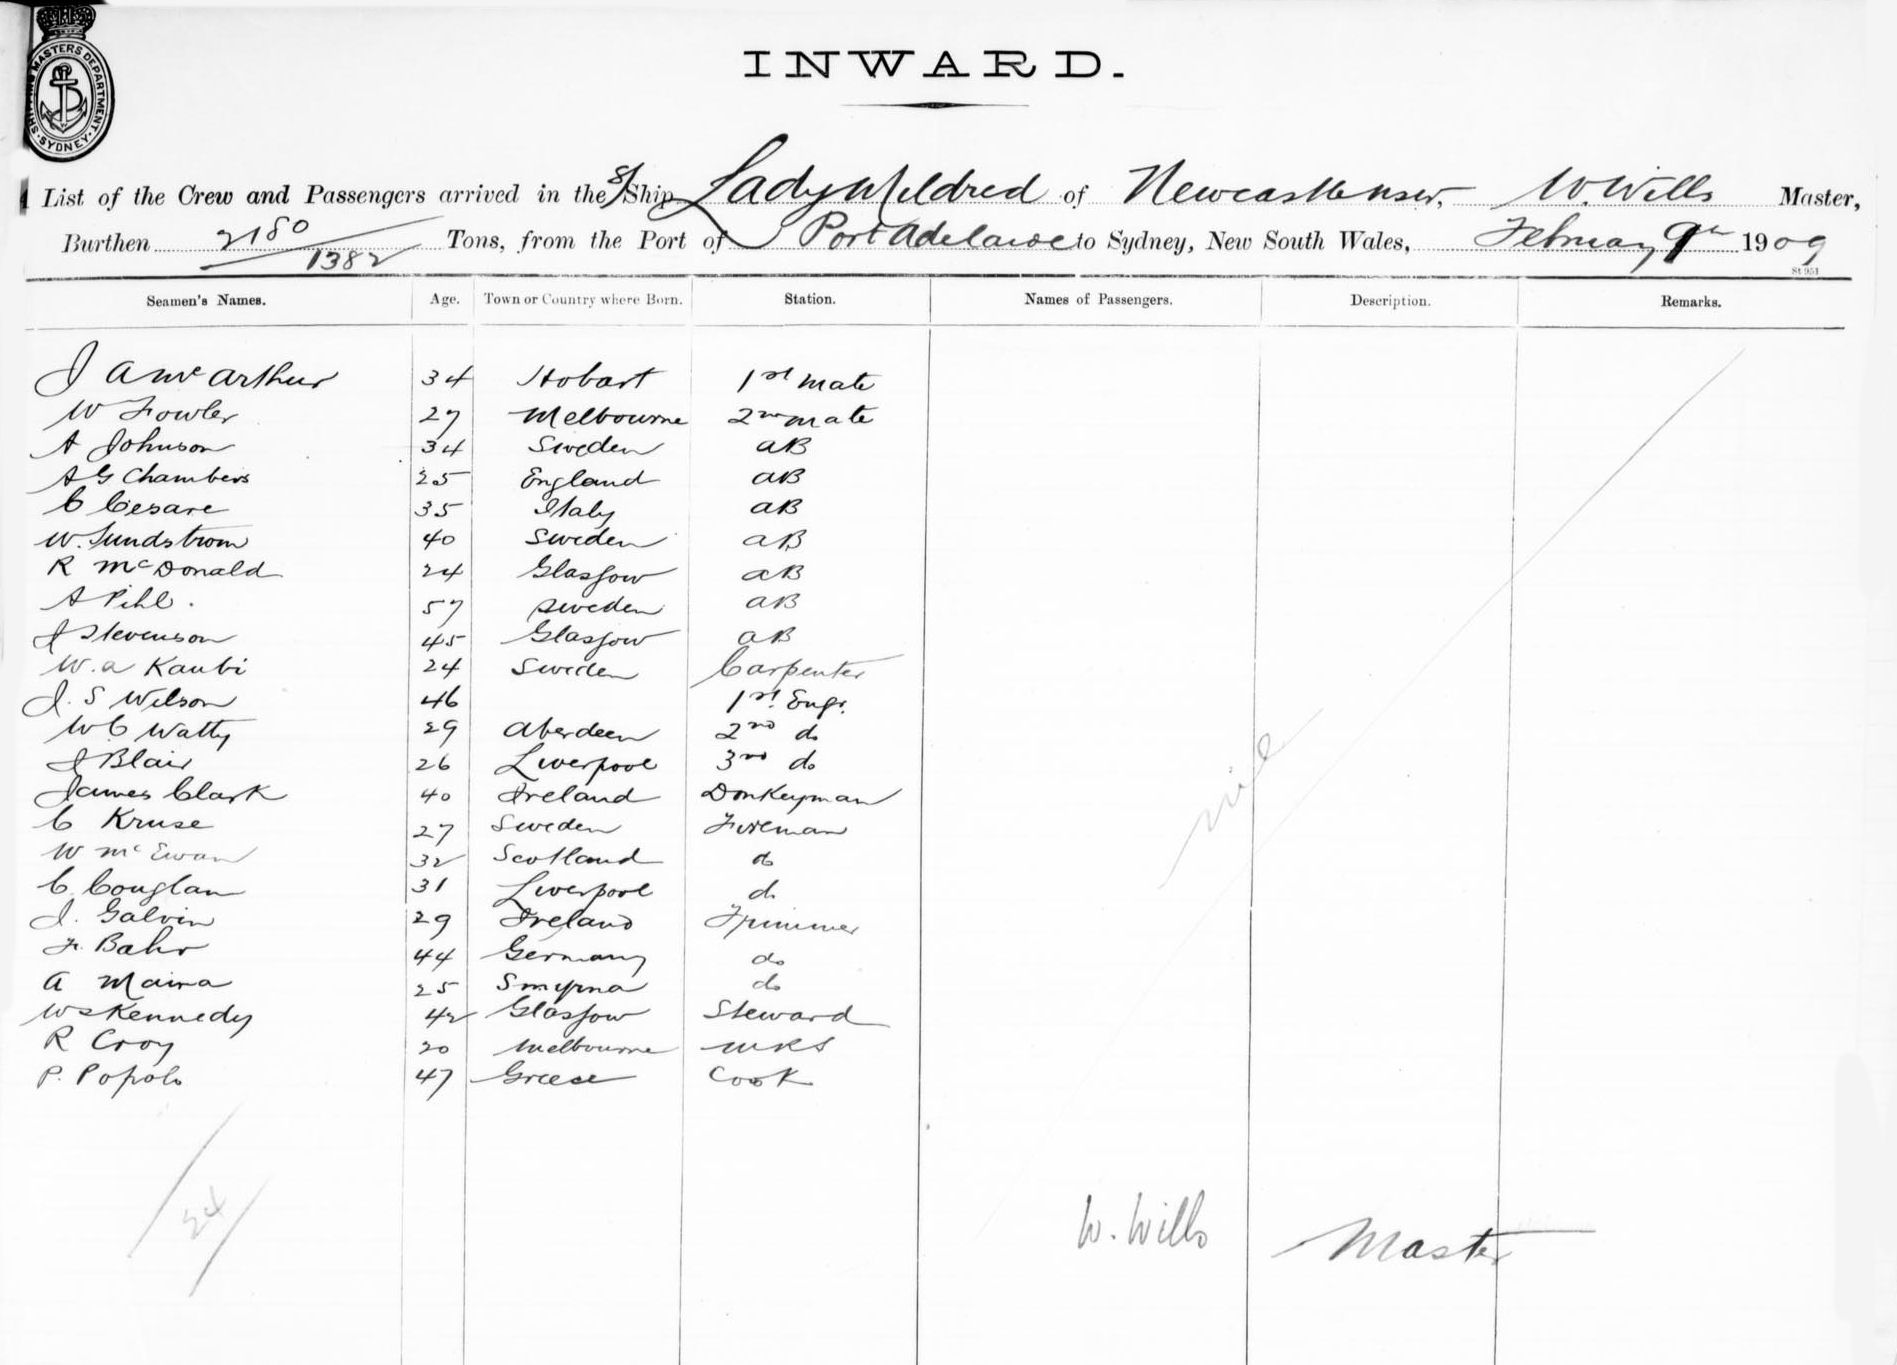 SHIPPING MASTERS DEPARTMENT. SYDNEY
INWARD.
List of the Crew and Passengers arrived in the S/Ship Lady Mildred of Newcastle NSW, W. Wills Master,
Burthen 2180/1382 Tons, from the Port of Port Adelaide to Sydney, New South Wales, February 9th 1909
St 951
Seamen's Names. Age. Town or Country where Born. Station. Names of Passengers. Description. Remarks.
J A McArthur 34 Hobart 1st mate
W Fowler 27 Melbourne 2nd mate
A Johnson 34 Sweden AB
A G Chambers 25 England AB
C Cesare 35 Italy AB
W. Sundstrom 40 Sweden AB
R McDonald 24 Glasgow AB
A Pihl. 57 Sweden AB
J Stevenson 45 Glasgow AB
W. A Kaubi 24 Sweden Carpenter
J. S Wilson 46 1st Engr.
W C Watty 29 Aberdeen 2nd do
J Blair 26 Liverpool 3rd do
James Clark 40 Ireland Donkeyman
C Kruse 27 Sweden Fireman
W McEwan 32 Scotland do
C. Couglan 31 Liverpool do
J. Galvin 29 Ireland Trimmer
F. Bahr 44 Germany do
A Maina 25 Smyrna do
W S Kennedy 42 Glasgow Steward
R Croy 20 Melbourne MRS
P. Popolo 47 Greese Cook
nil
24
W. Wills Master